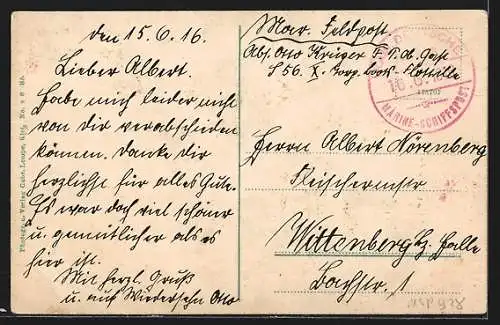 den 15.6.16
Lieber Albert.
Habe mich leider nicht
von dir verabschieden
können. Danke dir
herzlichst für alles Gute.
Es war doch viel schöner
u. gemütlicher als es
hier ist.
Mit herzl. Gruß
u. auf Wiedersehn Otto
Mar. Feldpost
Abs. Otto Krüger F.T.
S 56. X. Torp. boots-Flottille
MARINE-SCHIFFSPOST
Herrn Albert Nörenberg
Fleischermstr
Wittenberg Bz. Halle
Bachstr. 1